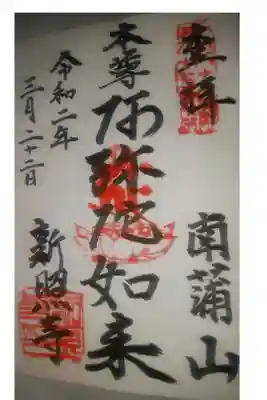 奉拝
南蒲山
本尊
阿弥陀如来
令和二年
三月二十二日
新照寺